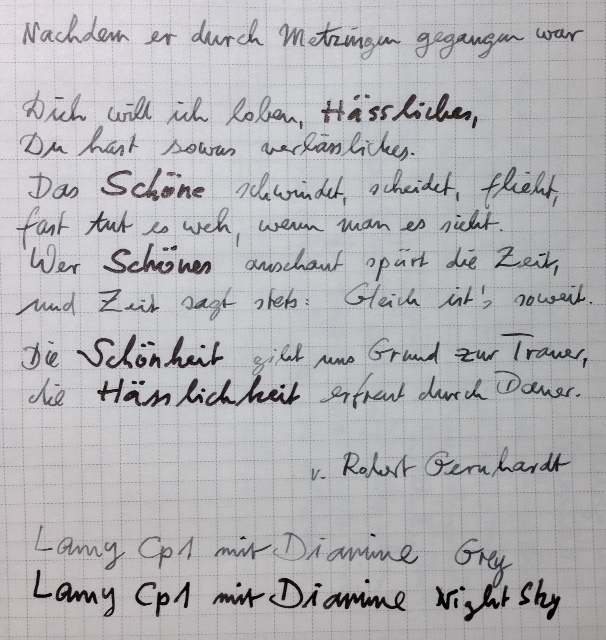 Nachdem er durch Metzingen gegangen war
Dich will ich loben, Hässliches,
Du hast sowas verlässliches.
Das Schöne schwindet, scheidet, flieht,
fast tut es weh, wenn man es sieht.
Wer Schönes anschaut spürt die Zeit,
und Zeit sagt stets: Gleich ist's soweit.
Die Schönheit gibt uns Grund zur Trauer,
die Hässlichkeit erfreut durch Dauer.
v. Robert Gernhardt
Lamy Cp1 mit Diamine Grey
Lamy Cp1 mit Diamine Night Sky